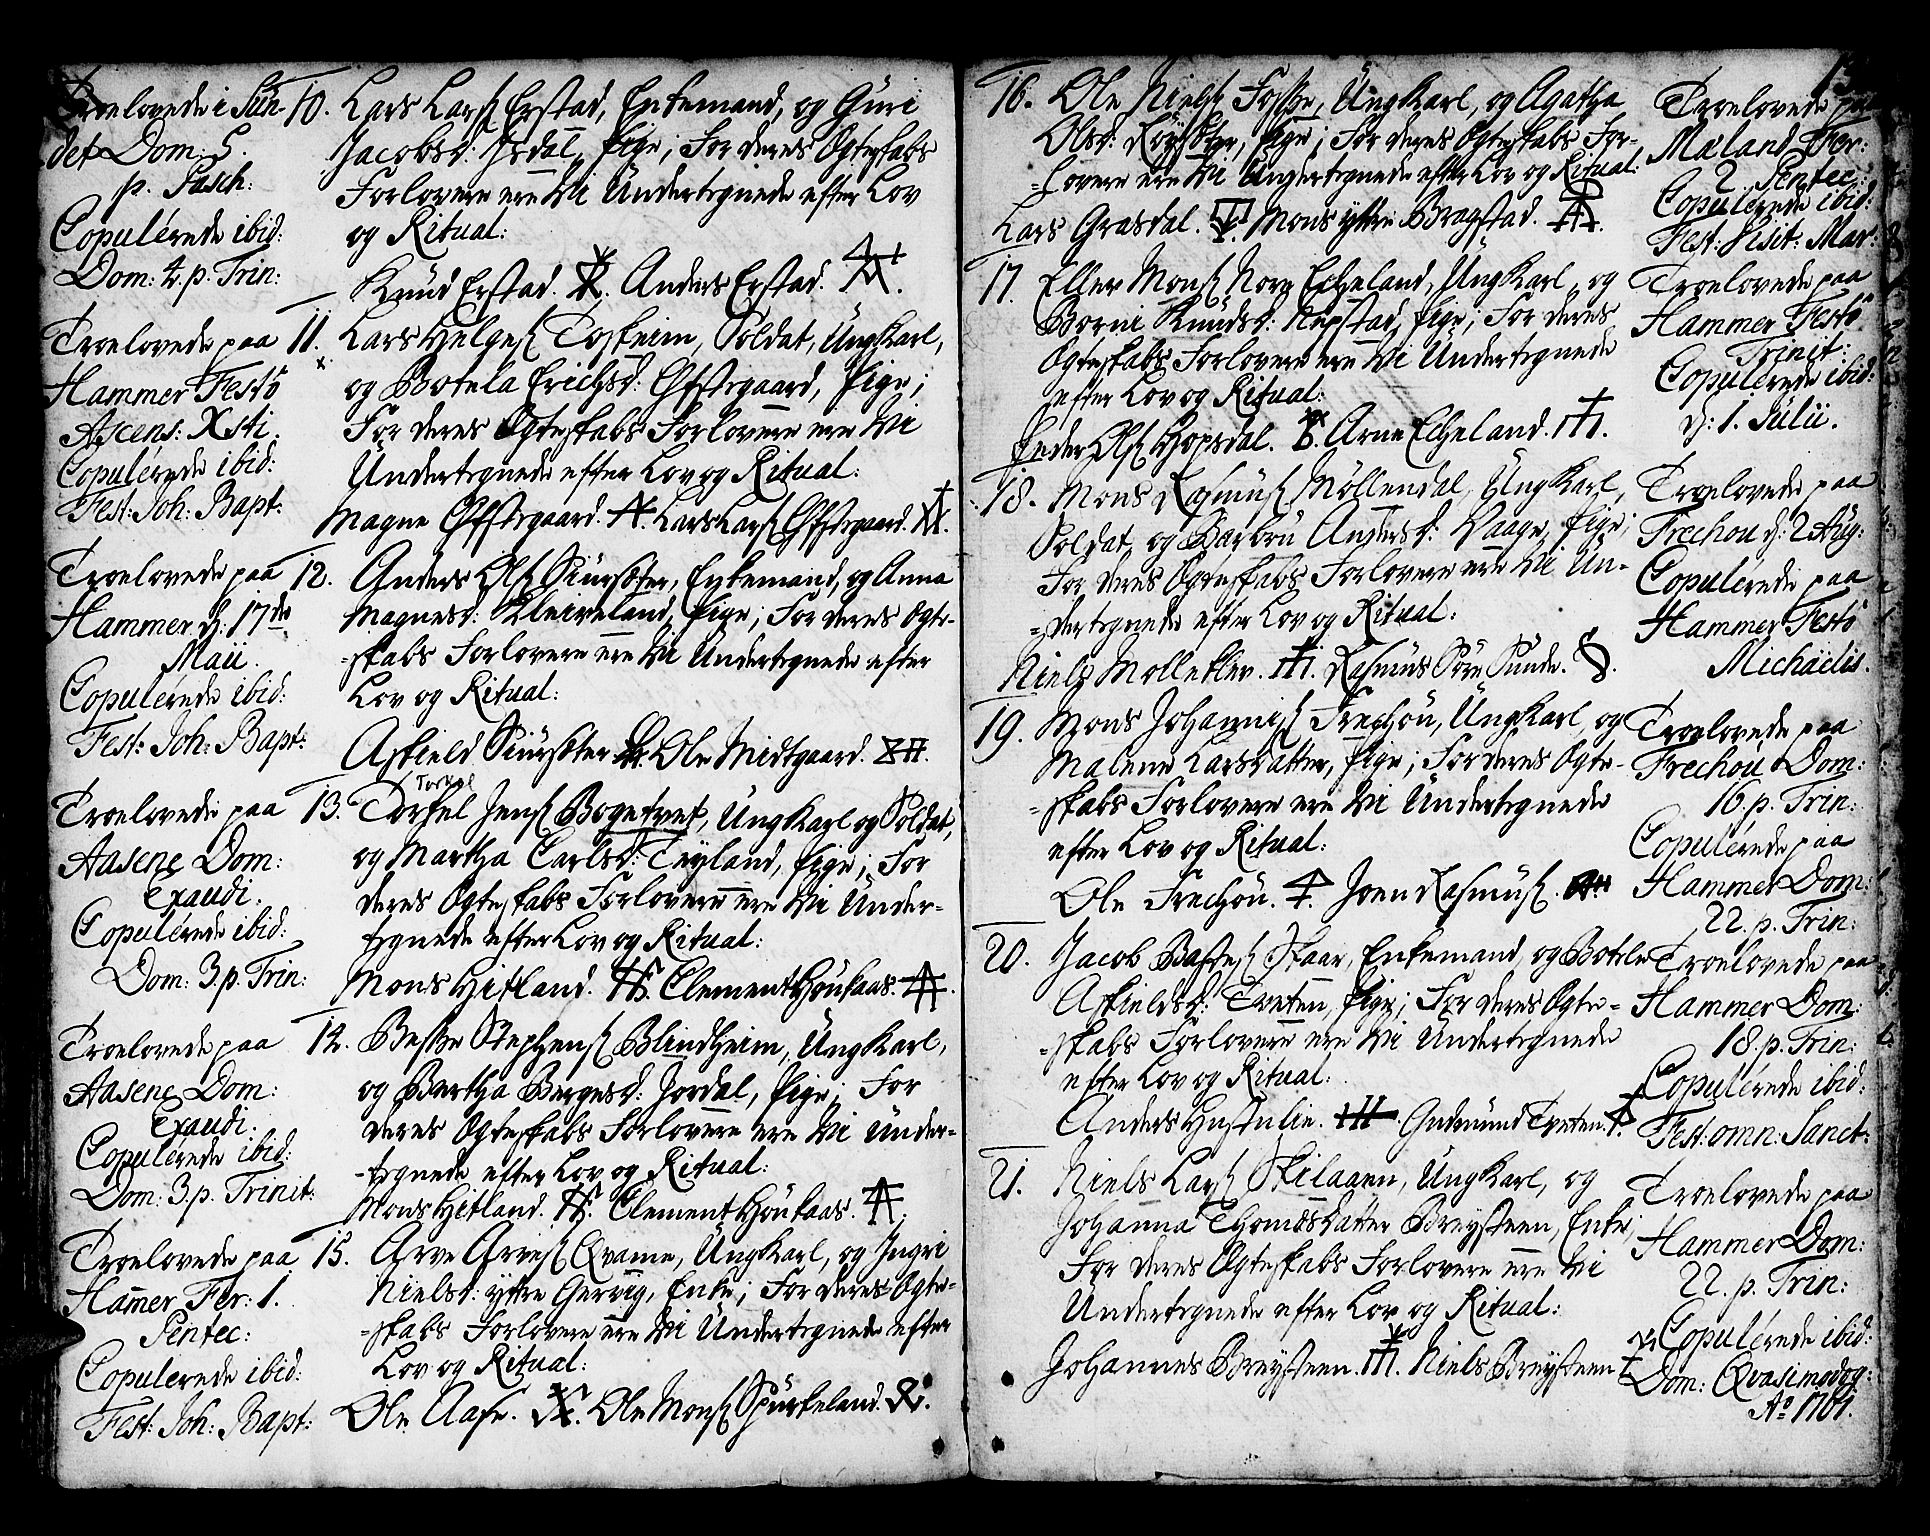 Troelovede i Sün-
det Dom: 5.
p. Pasch:
Copulérede ibid:
Dom: 4. p. Trin:
10. Lars Lars. Erstad, Enkemand, og Güri
Jacobsd: Isdal, Pige; For deres Ægteskabs
Forlovere ere Vi Undertegnede efter Lov
og Ritual:
Knud Erstad. Anders Erstad.
Troelovede paa
Hammer Festô
Ascens: Xsti.
Copulérede ibid:
Fest: Joh: Bapt:
11. Lars Helges. Toskeim, Soldat, Ungkarl,
og Botela Erichsd: Øfstegaard, Pige;
For deres Ægteskabs Forlovere ere Vi
Undertegnede efter Lov og Ritual:
Magne Øfstegaard. Lars Lars. Øfstegaard.
Troelovede paa
Hammer d: 17de
Maii.
Copulérede ibid:
Fest: Joh: Bapt:
12. Anders Ols. Siursæter, Enkemand, og Anna
Magnesd: Kleiveland, Pige; For deres Ægte-
-skabs Forlovere ere Vi Undertegnede efter
Lov og Ritual:
Askield Siursæter. Ole Midtgaard.
Troelovede paa
Aasene Dom:
Exaudi.
Copulérede ibid:
Dom: 3. p. Trin:
Torkel
13. Torkel Jens. Bogetvet, Ungkarl og Soldat,
og Martha Carlsd: Tejland, Pige; For
deres Ægteskabs Forlovere ere Vi Under-
tegnede efter Lov og Ritual:
Mons Hitland. Clement Houkaas.
Troelovede paa
Aasene Dom:
Exaudi.
Copulérede ibid:
Dom: 3. p. Trinit:
14. Beske Stephens. Blindheim, Ungkarl,
og Bartha Bergesd: Jordal, Pige; For
deres Ægteskabs Forlovere ere Vi Under-
-tegnede efter Lov og Ritual:
Mons Hitland. Clement Houkaas.
Troelovede paa
Ham̅er Fer: 1.
Pentec:
Copulerede ibid:
Fest: Joh: Bapt:
15. Arve Arves. Qvame, Ungkarl, og Ingri
Nielsd: ytre Gervig, Enke; For deres Ægte-
-skabs Forlovere ere Vi Undertegnede efter
Lov og Ritual:
Ole Aase. Ole Mons. Spürkeland.
16. Ole Niels. Fosse, Ungkarl, og Agatha
Olsd: Røysæter, Pige; For deres Ægteskabs For-
-lovere ere Vi Undertegnede efter Lov og Ritual:
Lars Grasdal. Mons ytre Bragstad.
Troelovede paa
Mæland Fer:
2 Pentec:
Copulérede ibid:
Fest: Visit: Mar:
17. Eller Mons. Nore Echeland, Ungkarl, og
Borni Knudsd: Nepstad, Pige; For deres
Ægteskabs Forlovere ere Vi Undertegnede
efter Lov og Ritual:
Peder Ols. Hopsdal. Arne Echeland.
Troelovede paa
Hammer Festô
Trinit:
Copulérede ibid:
d: 1. Julii.
18. Mons Rasmus. Möllendal, Ungkarl,
Soldat, og Barbru Andersd: Vaage, Pige;
For deres Ægteskabs Forlovere ere Vi Un-
-dertegnede efter Lov og Ritual:
Niels Molleklev. Rasmus Søre Sunde.
Troelovede paa
Frechou d: 2 Aug:
Copulérede paa
Hammer Festô
Michaëlis.
19. Mons Johannis. Frechou, Ungkarl, og
Malene Larsdatter, Pige; For deres Ægte-
-skabs Forlovere ere Vi Undertegnede
efter Lov og Ritual:
Ole Frechou. Joen Rasmus.
Troelovede paa
Frechou Dom:
16. p. Trin:
Copulérede paa
Hammer Dom:
22. p. Trin:
20. Jacob Bastes. Skaar, Enkemand, og Botele
Askieldsd: Tveten, Pige; For deres Ægte-
-skabs Forlovere ere Vi Undertegnede
efter Lov og Ritual:
Anders Hustulie. Gudmund Tveten.
Troelovede paa
Hammer Dom:
18. p. Trin:
Copulérede ibid:
Fest: omn: Sanct:
21. Niels Lars. Skilaaen, Ungkarl, og
Johanna Thomæsdatter Breysteen, Enke;
For deres Ægteskabs Forlovere ere Vi
Undertegnede efter Lov og Ritual:
Johannes Breysteen. Niels Breysteen
Troelovede paa
Hammer Dom:
22. p. Trin:
Copulérede ibid:
Dom: Qvasimodog:
Ao 1761.